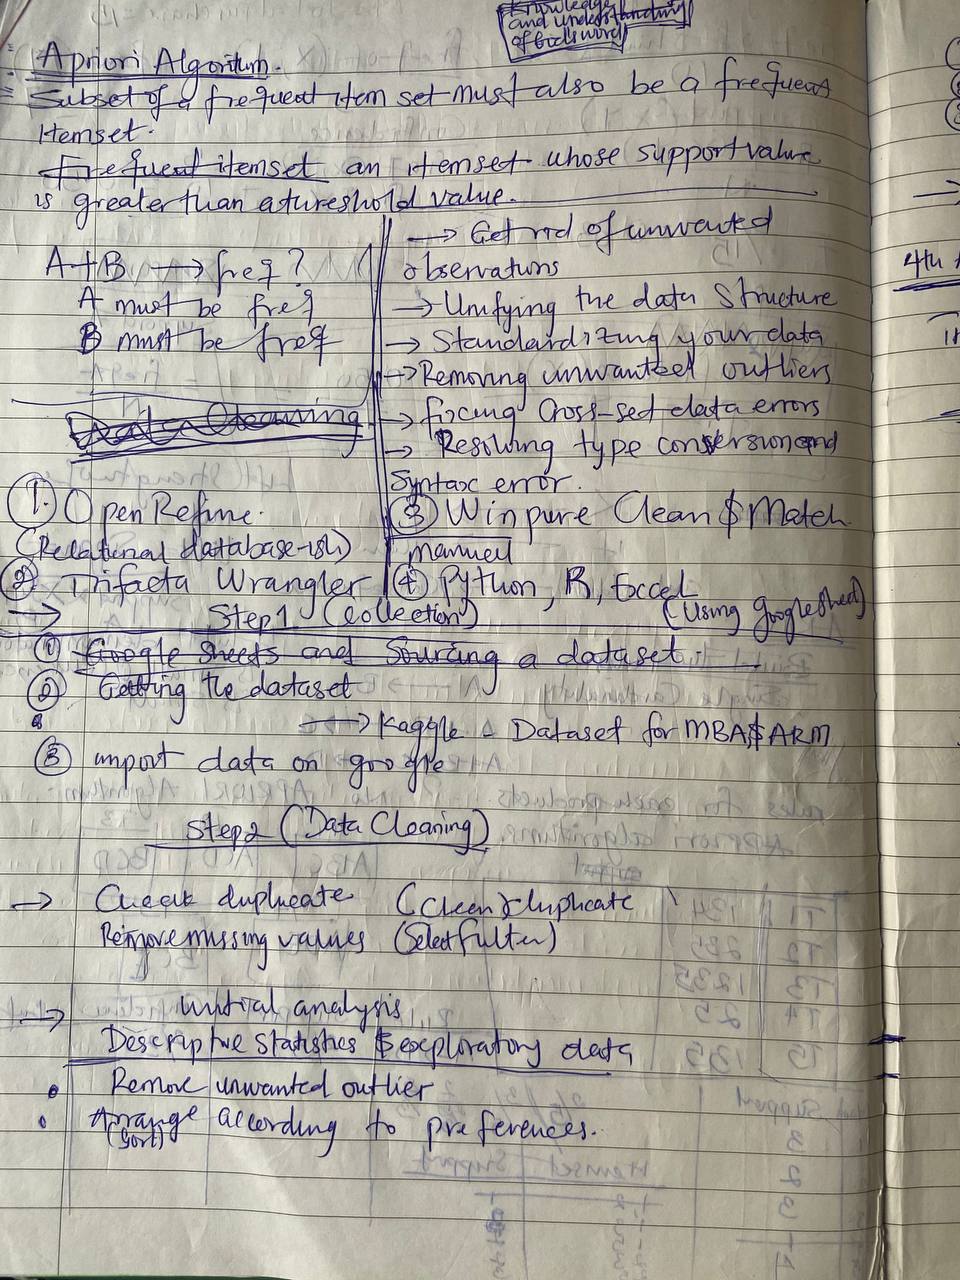 knowledge
and understanding
of God's word
Apriori Algoritum.
Subset of a frequent item set must also be a frequent
itemset.
Frequent itemset an itemset whose support value
is greater than a tureshold value.
A+B → freq?
A must be freq
B must be freq
Data Cleaning
→ Get rid of unwanted
observations
→ Unifying the data structure
→ Standardizing your data
→ Removing unwanted outliers
→ fixing Cross-set data errors
→ Resolving type conversion and
Syntax error.
1. Open Refine.
(Relational database-ish)
② Trifacta Wrangler
③ Winpure Clean & Match
manuel
④ Python, R, Excel
(Using googlesheet)
→ Step 1 (Collection)
① Google Sheets and Sourcing a dataset.
② Getting the dataset
→ Kaggle - Dataset for MBA & ARM
③ import data on google
Step 2 (Data Cleaning)
→ Check duplicate (Clean duplicate
Remove missing values (Select fulter)
→ initial analysis
Descriptive Statistics & exploratory data
• Remove unwanted outlier
• Arrange according to preferences.
(Sort)
4th